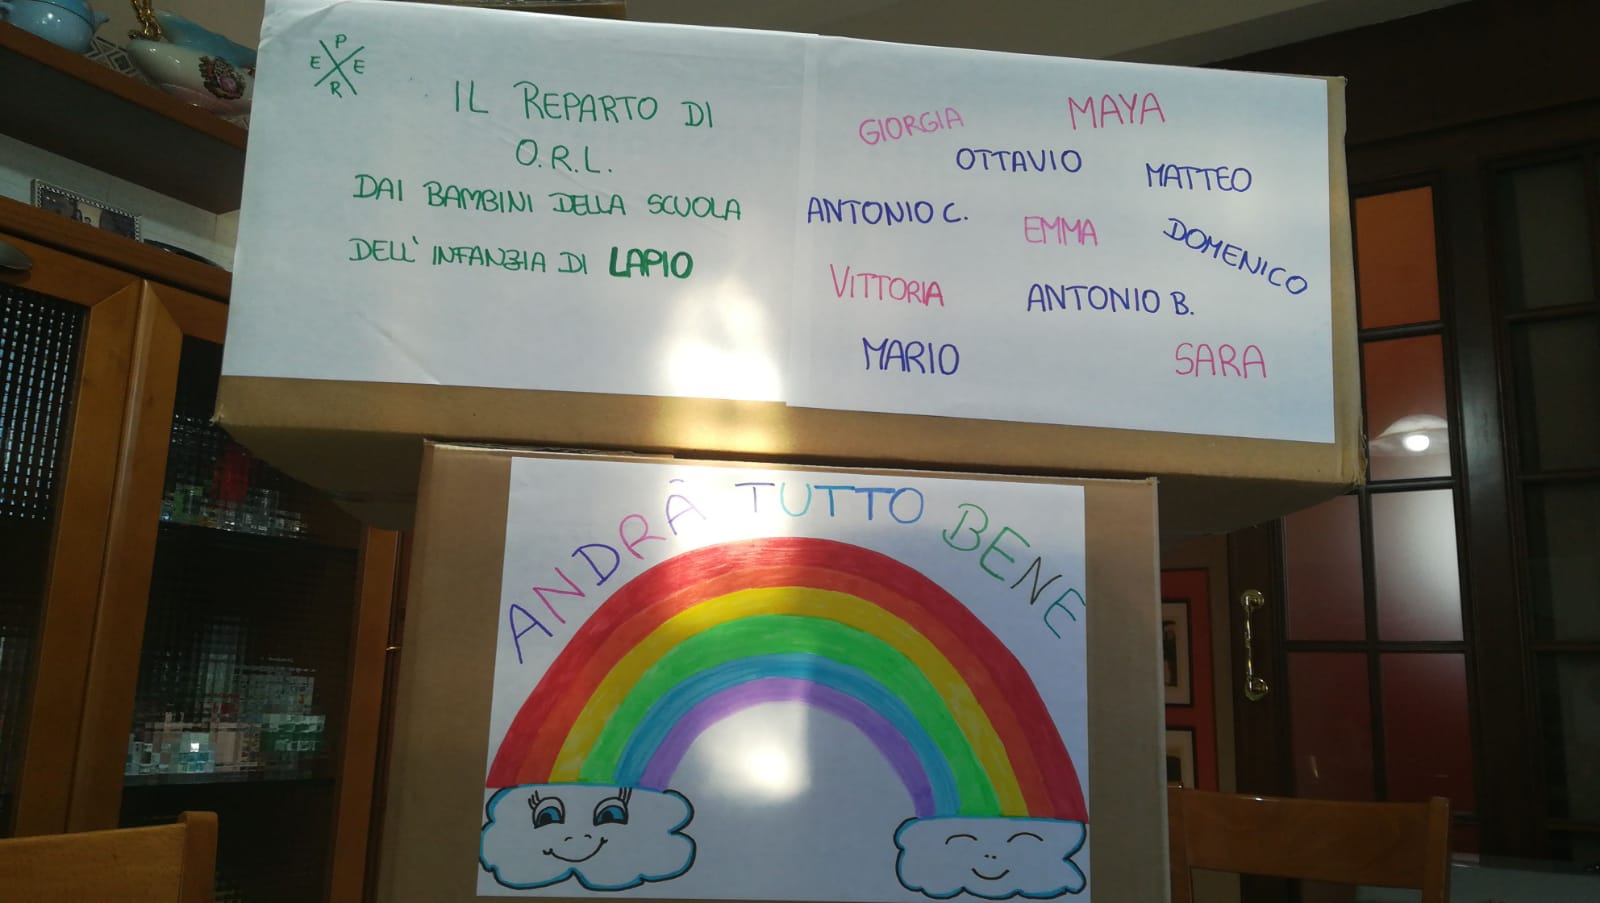 P
E E
R
IL REPARTO DI
O.R.L.
DAI BAMBINI DELLA SCUOLA
DELL' INFANZIA DI LAPIO
GIORGIA MAYA
OTTAVIO MATTEO
ANTONIO C. EMMA DOMENICO
VITTORIA ANTONIO B.
MARIO SARA
ANDRÀ TUTTO BENE